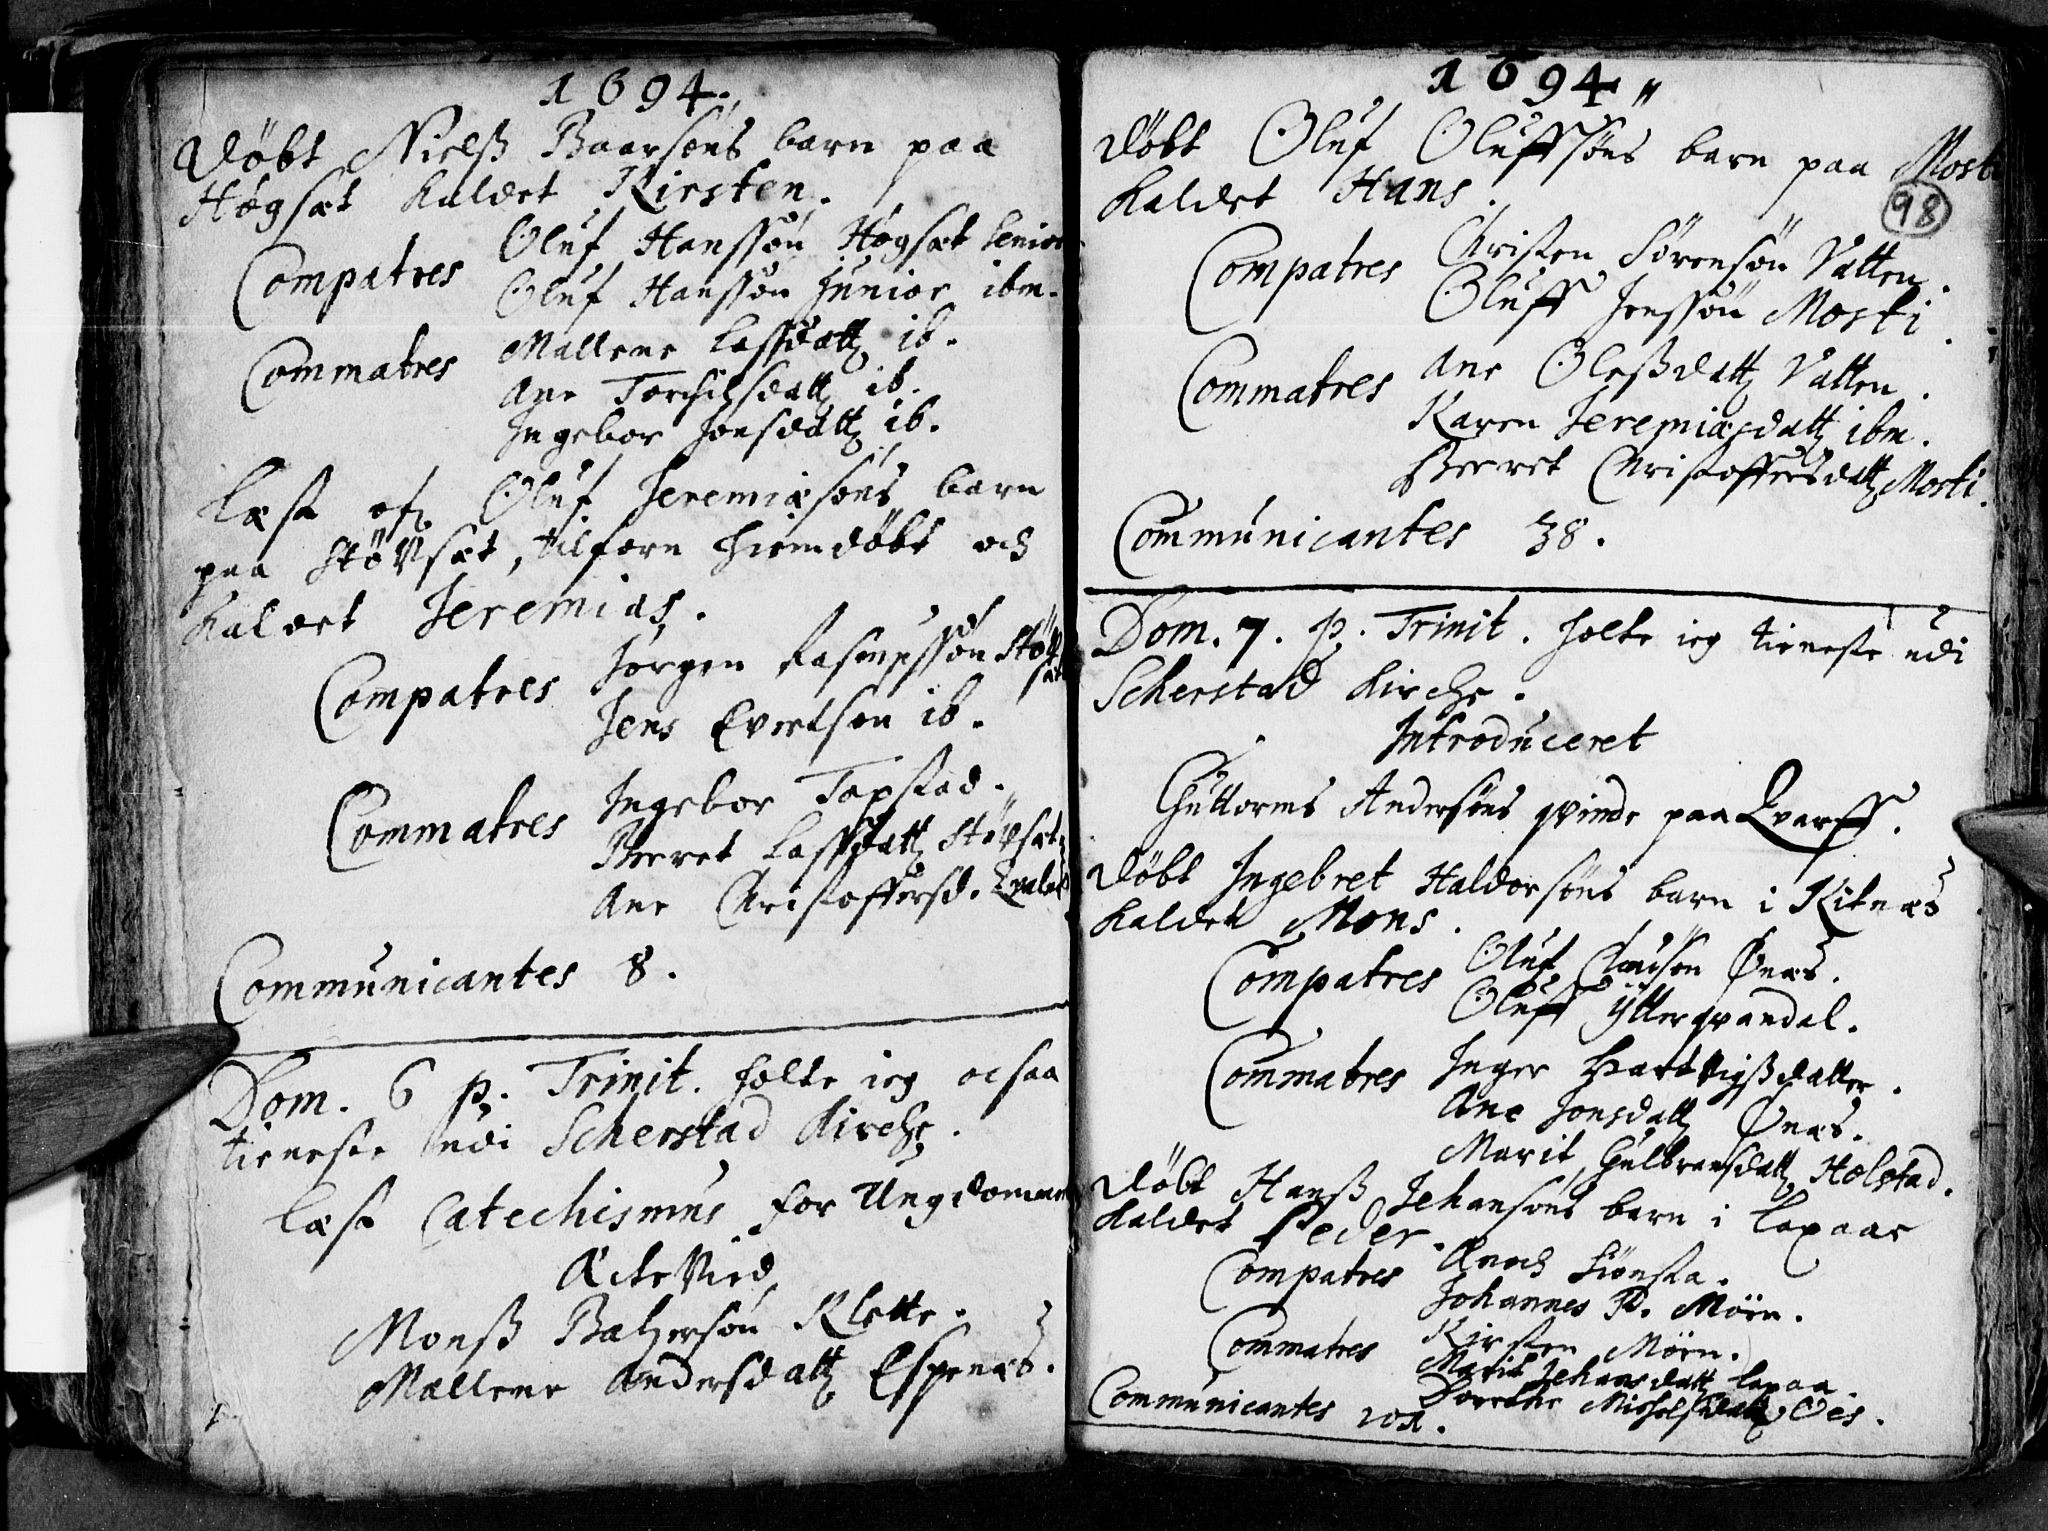 1694.
Døbt Nielß Baarsøns barn paa
Høgsæt kaldet Kirsten.
Compatres Oluf Hanssøn Høgsæt Senior
Oluf Hanssøn Junior ibm.
Commatres Mallene Lassdatt ib.
Ane Torchilsdatt ib.
Ingebor Jonsdatt ib.
Læst ofr Oluf Jeremiæsøns barn
paa Støvsæt, tilforn hiemdøbt och
kaldet Jeremias.
Compatres Jørgen Rasmussøn Støv
sæt
Jens Evertsøn ib.
Commatres Ingebor Tapstad.
Berret Lassdatt Støvsæt
Ane Christoffersd.
Communicantes 8.
Dom. 6 p. Trinit. holte ieg ocsaa
tieneste udi Scherstad Kirche.
Læst Catechismus for Ungdommen
Ächte Vied
Monß Baltzersøn Klette.
Mallene Andersdatt Espenæs.
1694
Døbt Oluf Oluffsøns barn paa Mosti
kaldet Hans.
98
Compatres Christen Sørensøn Vatten.
Oluff Jenssøn Mosti.
Commatres Ane Oleßdatt Vatten.
Karen Jeremiæsdatt ibm.
Berret Christoffersdatt Mosti.
Communicantes 38.
Dom. 7. p. Trinit. holte ieg tieneste udi
Scherstad Kirche.
Introduceret
Guttorms Andersøns qvinde paa Qvarff.
Døbt Ingebret Haldorsøns barn i Kitnæs
kaldet Mons.
Compatres Oluf Clausøn Øenæs.
Oluff Ytterqvandal.
Commatres Inger Hartvigßdatter.
Ane Jonsdatt Øenæs.
Marit Gulbransdatt Holstad.
Døbt Hanß Jehansøns barn i Laxaae
kaldet Peder.
Compatres Anoch Siønsta.
Johannes P. Mörn.
Commatres Kirsten Mörn.
Marit Jehansdatt Laxaa.
Dorethe Michelsdatt Oes.
Communicantes 101.